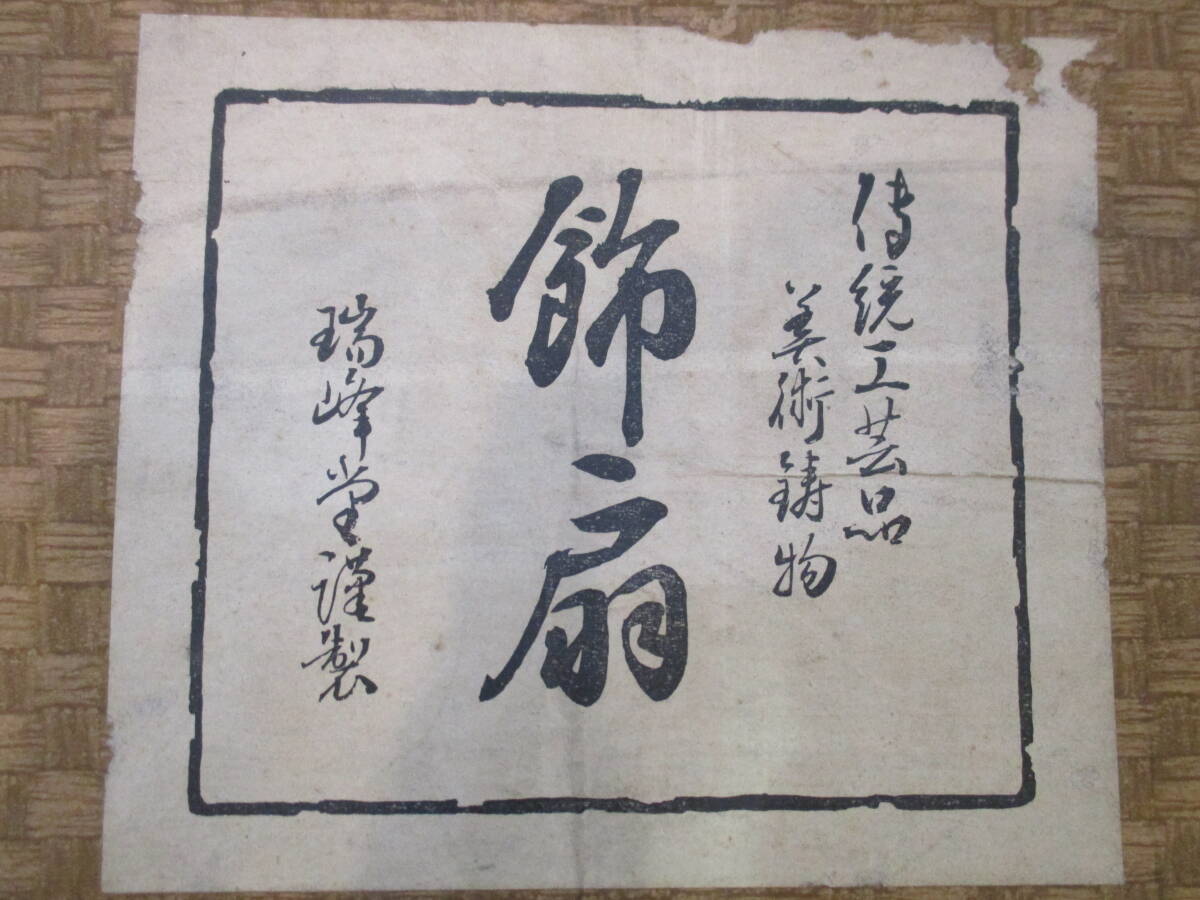 傳統工芸品
美術鋳物
飾扇
瑞峰堂謹製